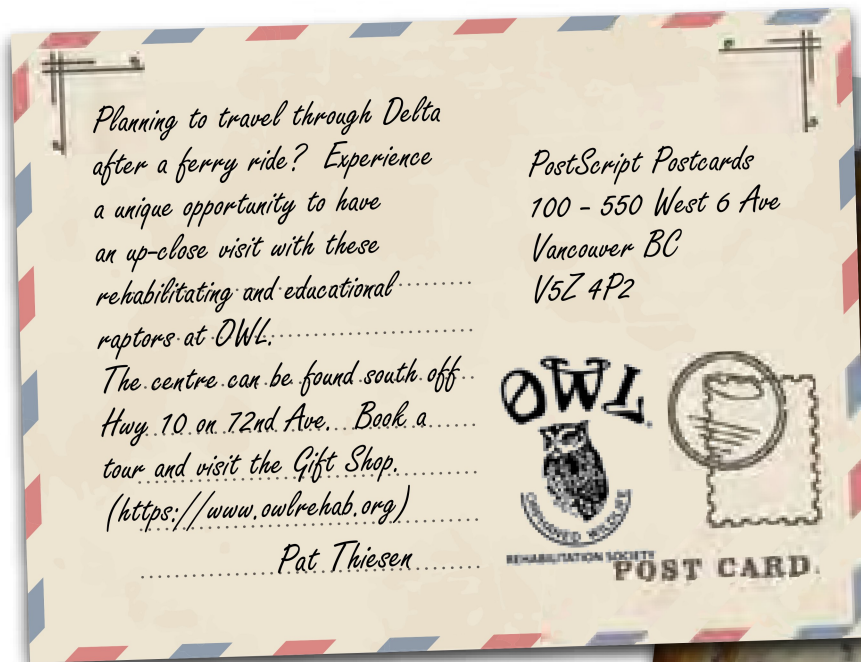 Planning to travel through Delta
after a ferry ride? Experience
a unique opportunity to have
an up-close visit with these
rehabilitating and educational
raptors at OWL.
The centre can be found south off
Hwy 10 on 72nd Ave. Book a
tour and visit the Gift Shop.
(https://www.owlrehab.org)
Pat Thiesen
PostScript Postcards
100 - 550 West 6 Ave
Vancouver BC
V5Z 4P2
OWL
ORPHANED WILDLIFE
REHABILITATION SOCIETY
POST CARD.